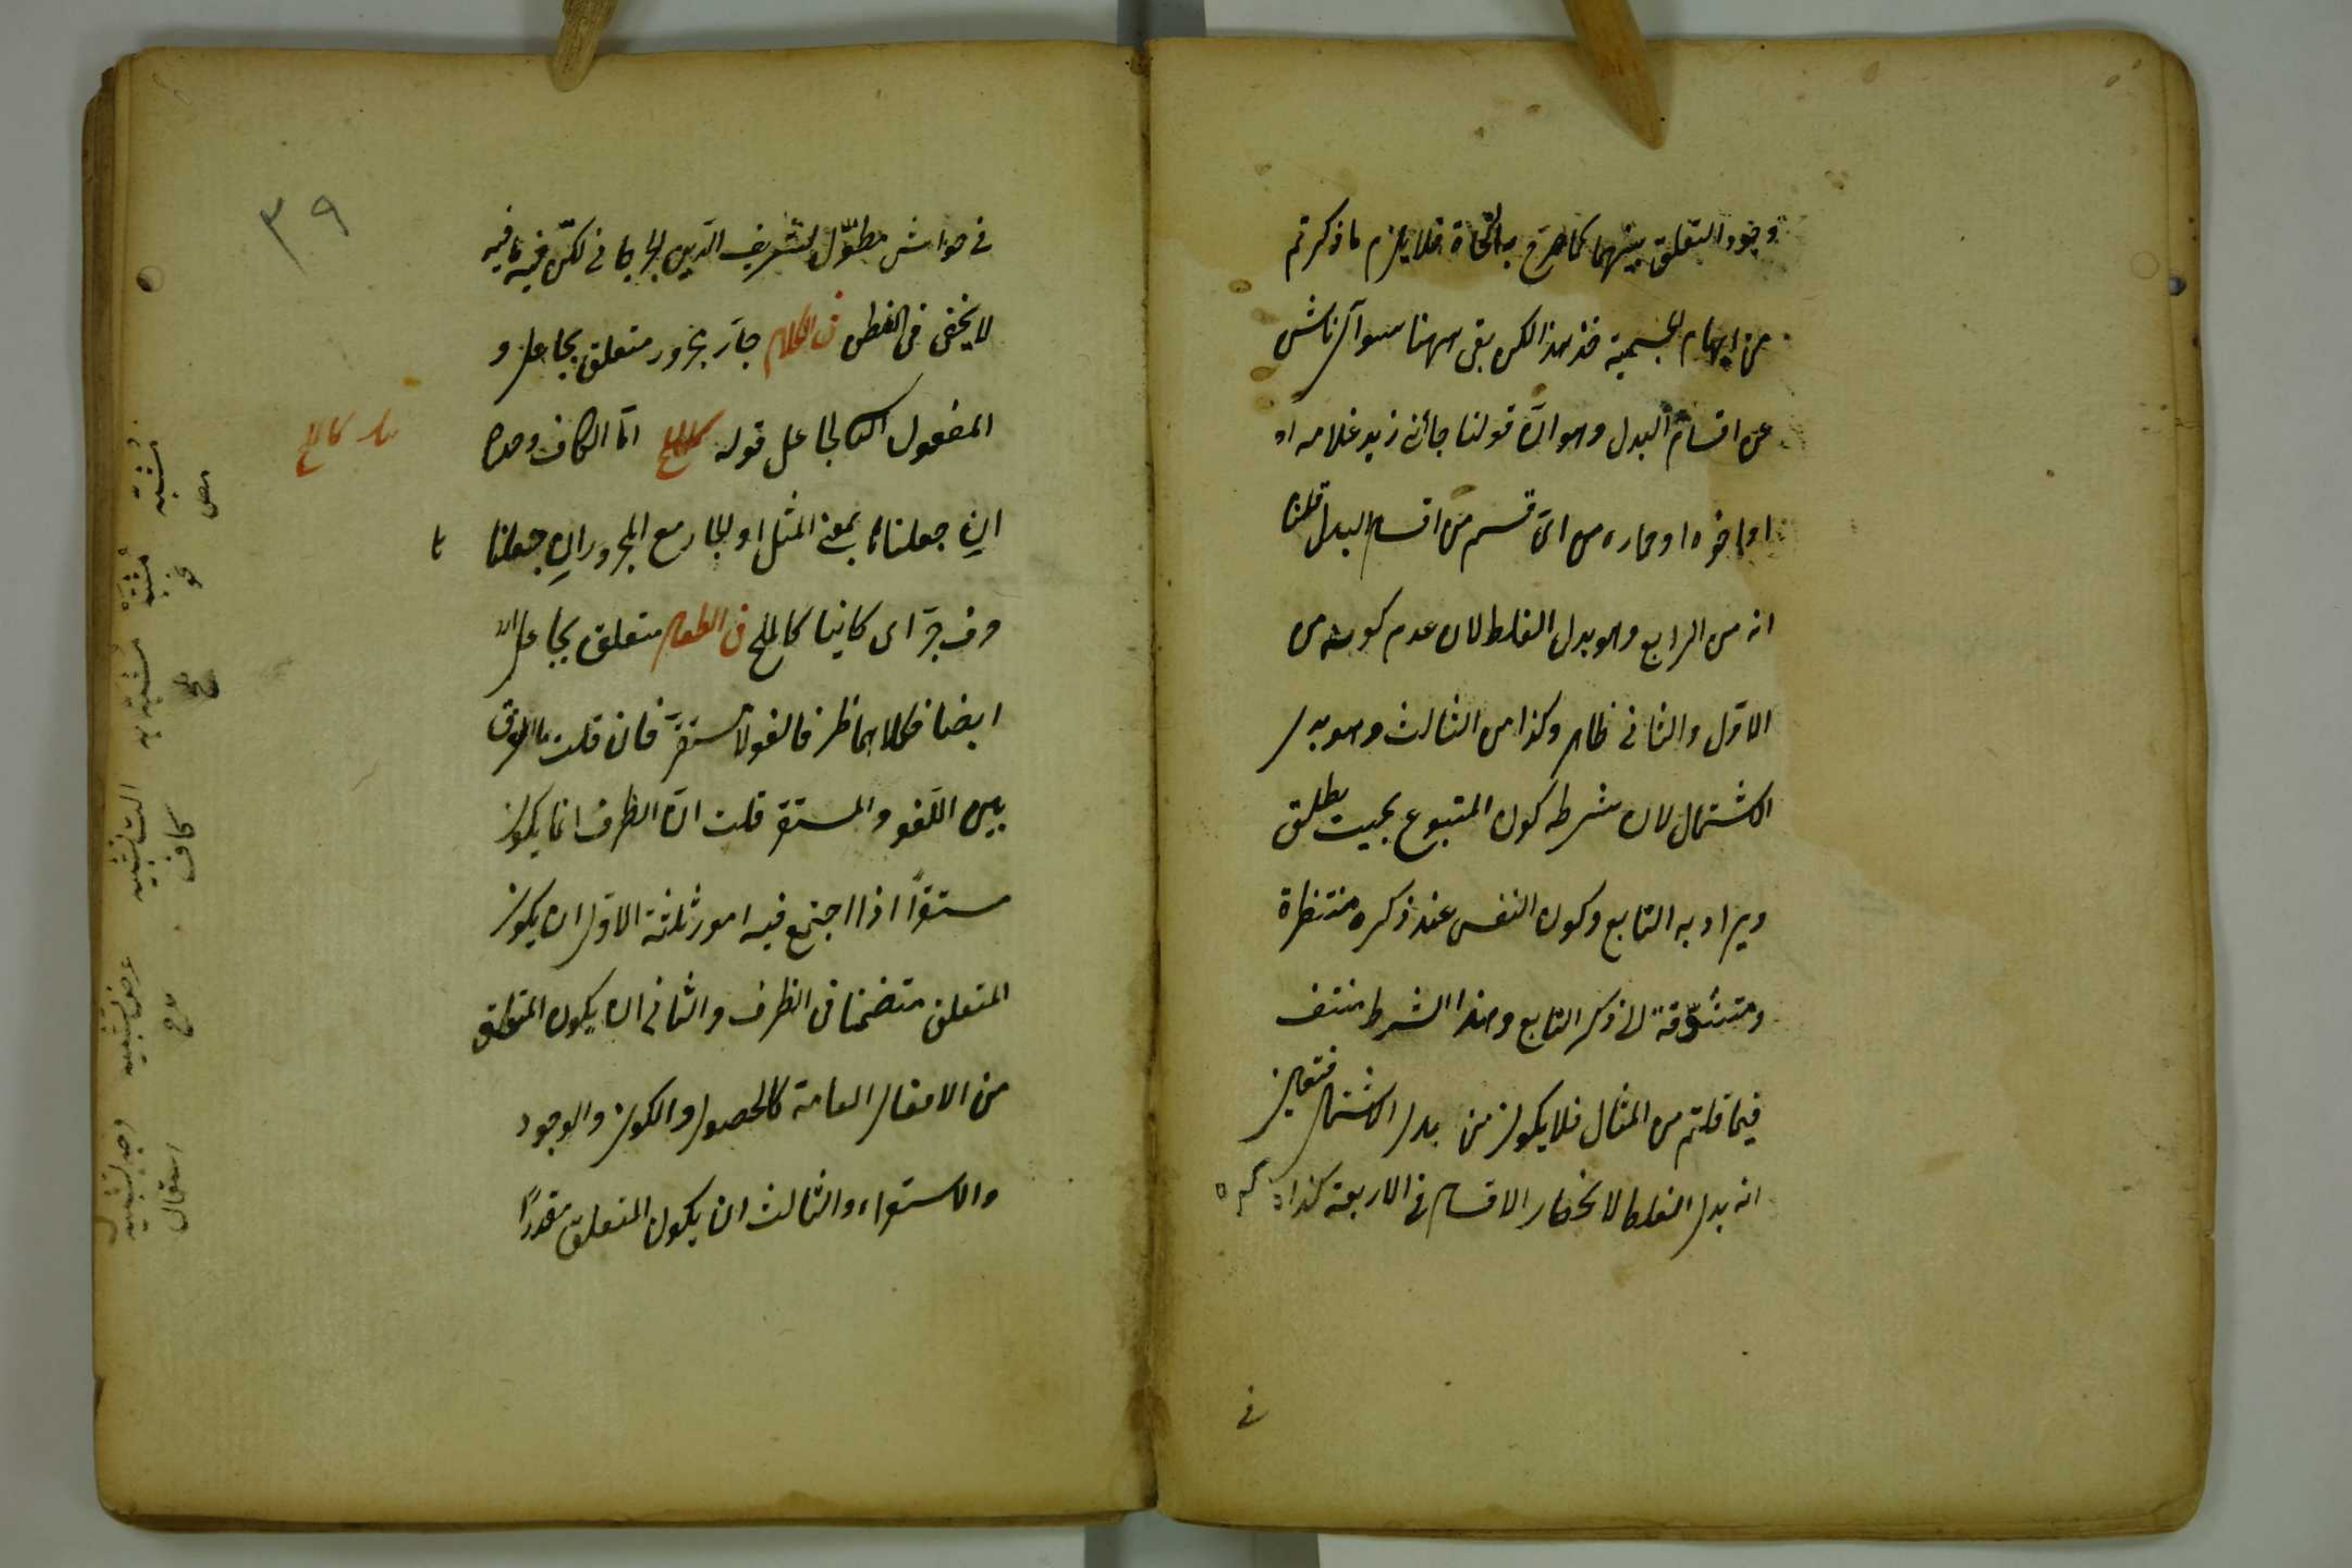 وجود التعلق بينهما كما صرّح به النّحاة فلا يلزم ما ذكرتم
من ايهام الجسمية خذ هذا لكن بقى ههنا سوآل ناش
عن اقسام البدل وهو انّ قولنا جائنى زيد غلامه او
او اخوه او حماره من اىّ قسم من اقسام البدل قلنا
انه من الرابع وهو بدل الغلط لان عدم كونه من
الاوّل والثانى ظاهر وكذا من الثالث وهو بدل
الاشتمال لان شرطه كون المتبوع بحيث يطلق
ويراد به التابع وكون النفس عند ذكره منتظرة
ومتشوّقة الى ذكر التابع وهذا الشرط منتف
فيما قلتم من المثال فلا يكون من بدل الاشتمال فتعين
انه بدل الغلط لانحصار الاقسام فى الاربعة كذا
فى
٣٩
فى حواشى مطوّل للشريف الدّين الجرجانى لكنّ فيه ما فيه
لا يخفى فى الفطن فى الكلام جارّ مجرور متعلق بجاعل و
المفعول الثانى لجاعل قوله كالملح امّا الكاف وحده
ان جعلناها بمعنى المثل او الجار مع المجرور ان جعلنا ها
حرف جرّ اى كاينا كالملح فى الطعام متعلق بجاعل
ايضا فكلاهما ظرفا لغو لا مستقرّ فان قلت ما الفرق
بين اللّغو والمستقر قلت انّ الظرف انما يكون
مستقرّاً اذا اجتمع فيه امور ثلثة الاوّل ان يكون
المتعلق متضمنا فى الظرف والثانى ان يكون المتعلق
من الافعال العامة كالحصول والكون والوجود
والاستقراء والثالث ان يكون المتعلق مقدرًا
كالملح
مشبّه
نحو
مشبّه به
ملح
كاف